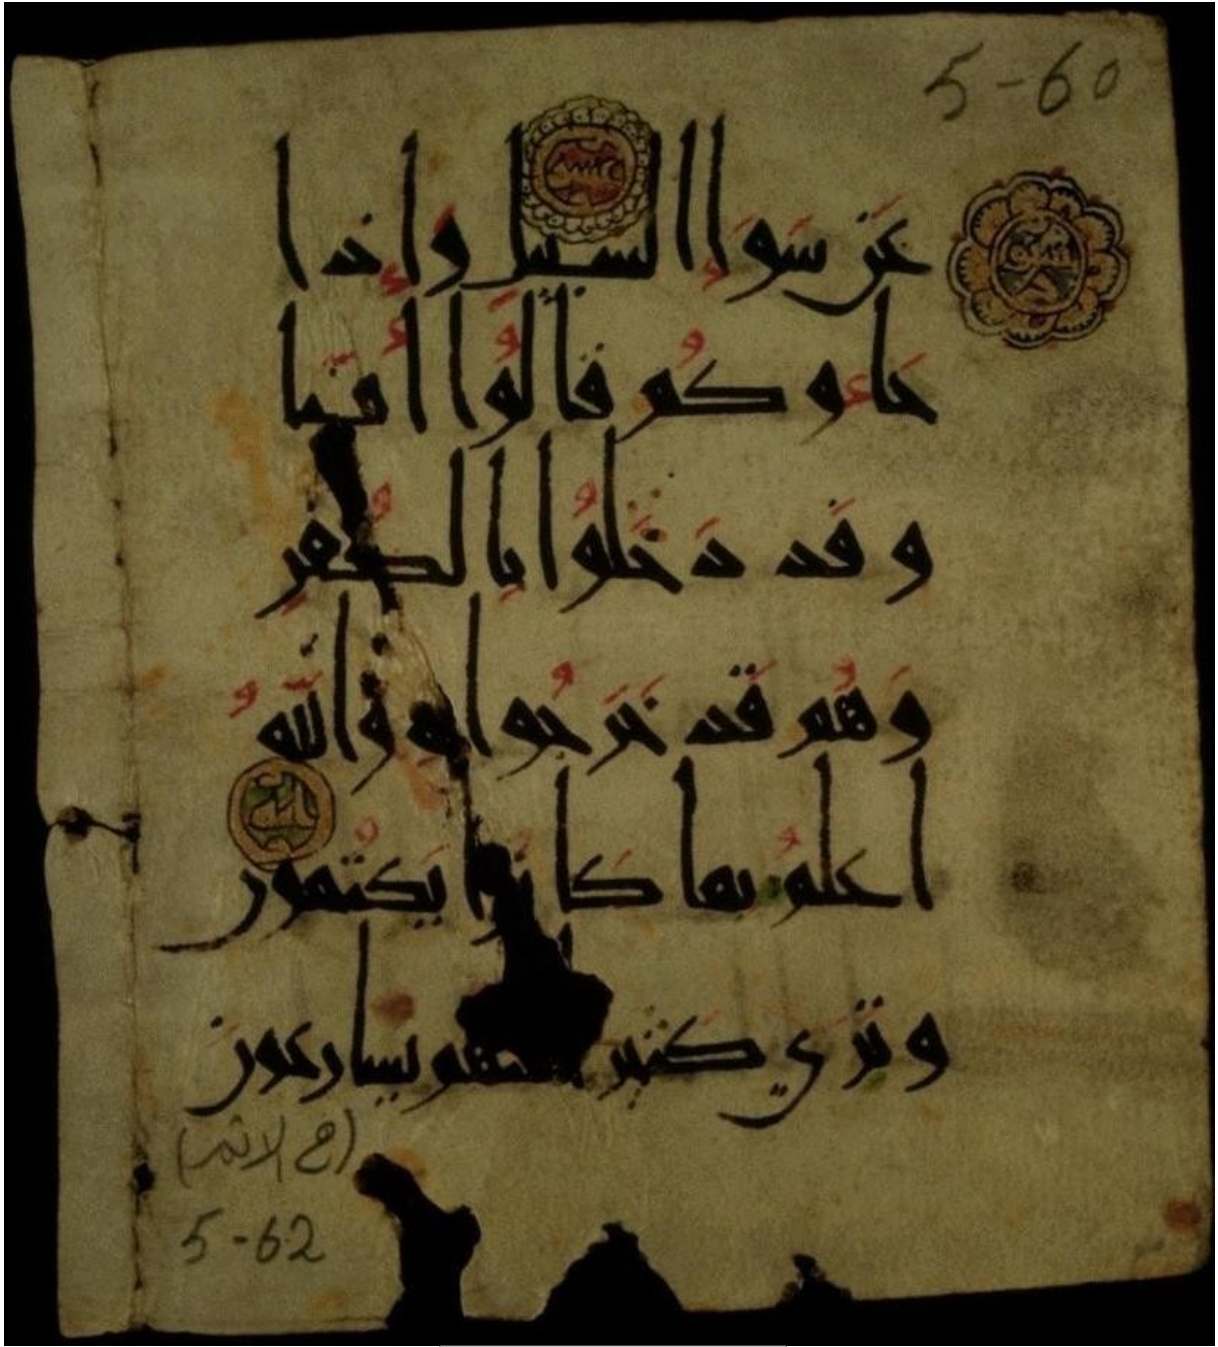 5-60
عَن سَوَا السبيل وَإِذا
جَاءوكُم قَالُوا أمَنّا
وقَد دَخَلُوا بِالكُفرِ
وَهُم قَد خَرَجُوا بِه وَاللّهُ
اعلمُ بما كَانوا يَكتُمون
وتَرَى كَثيرا منهم يسارعونَ
(في الاثم)
5-62